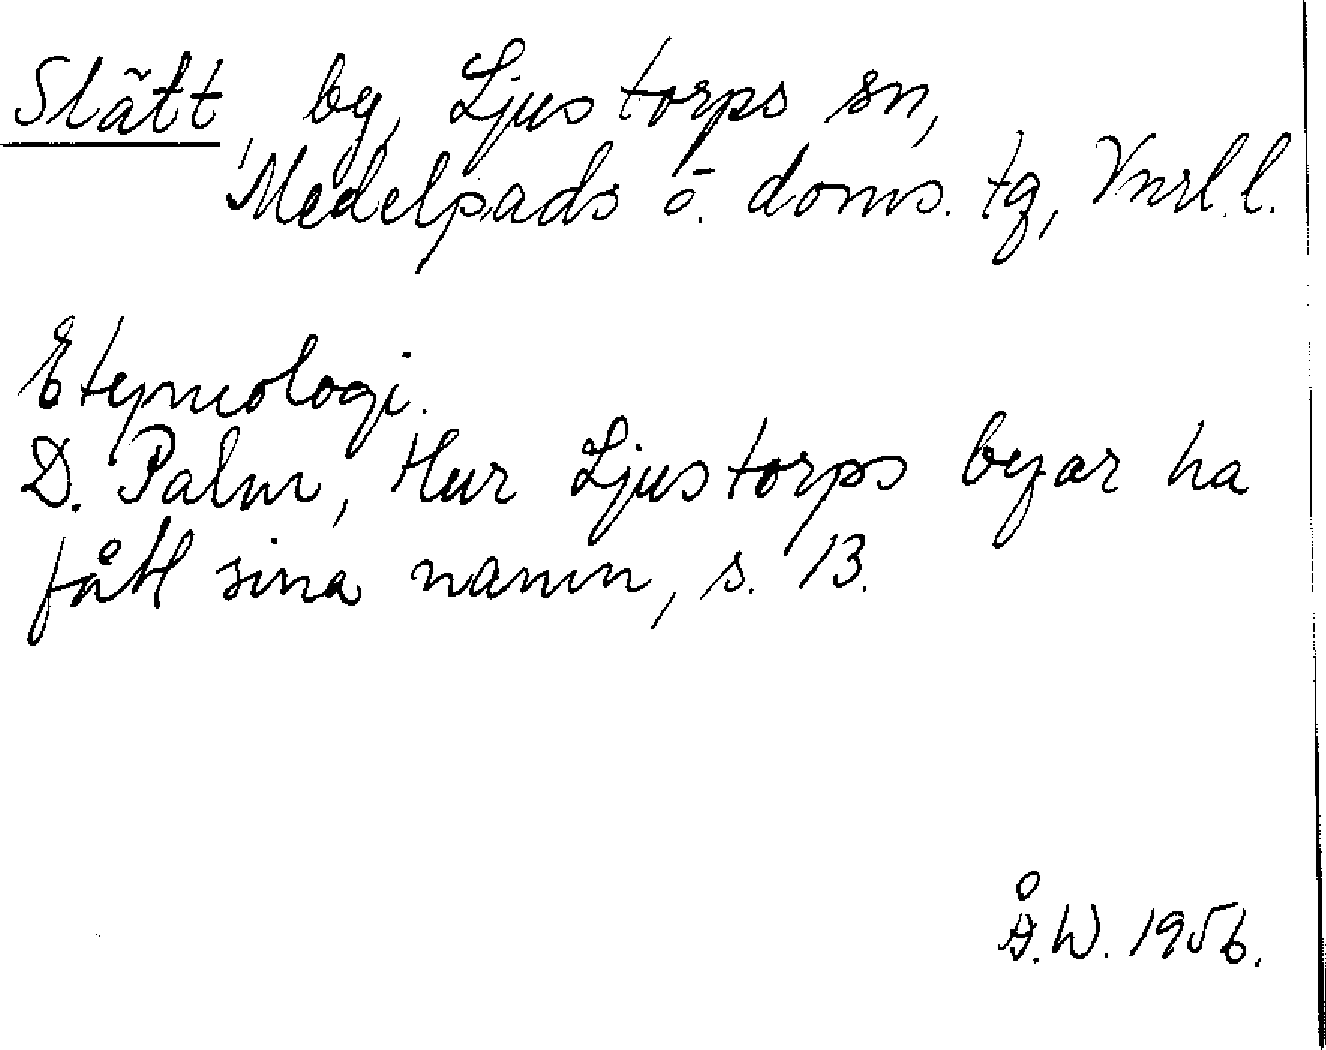 Slätt, by, Ljustorps sn,
Medelpads ö. doms. tg, Vnrl. l.
Etymologi.
D. Palm, Hur Ljustorps byar ha
fått sina namn, s. 13.
Å.W. 1956.